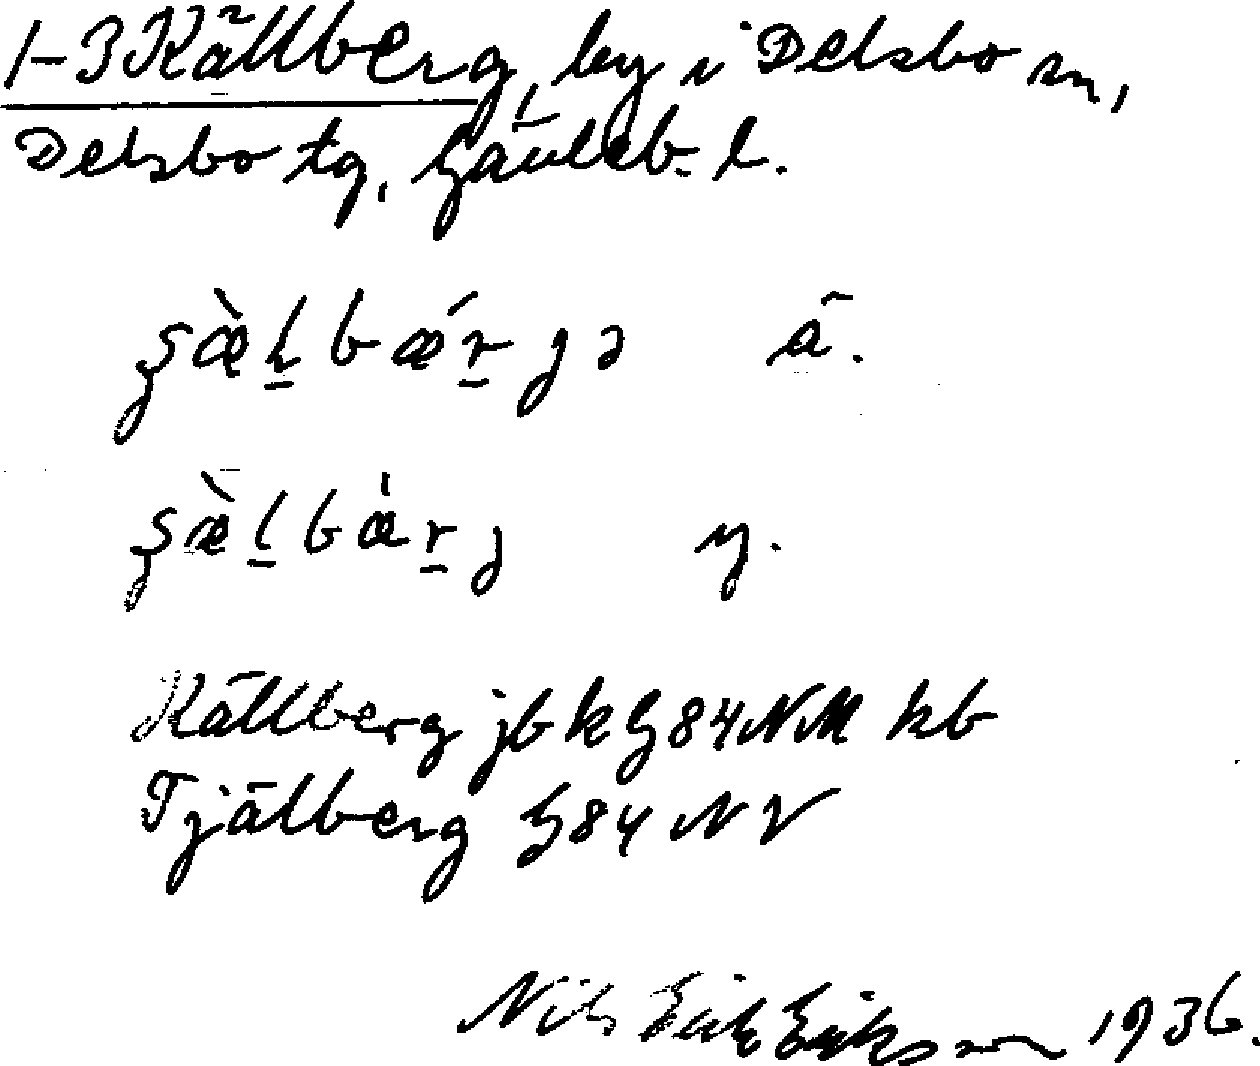 1-3 Källberg, by i Delsbo sn,
Delsbo tg, Gävleb. l.
ʂæ̀l̠bǽr̠jə ä.
ʂæ̀l̠bær̠j y.
Källberg jb k G84NM kb
Tjälberg G84NV
Nils Erik Eriksson 1936.